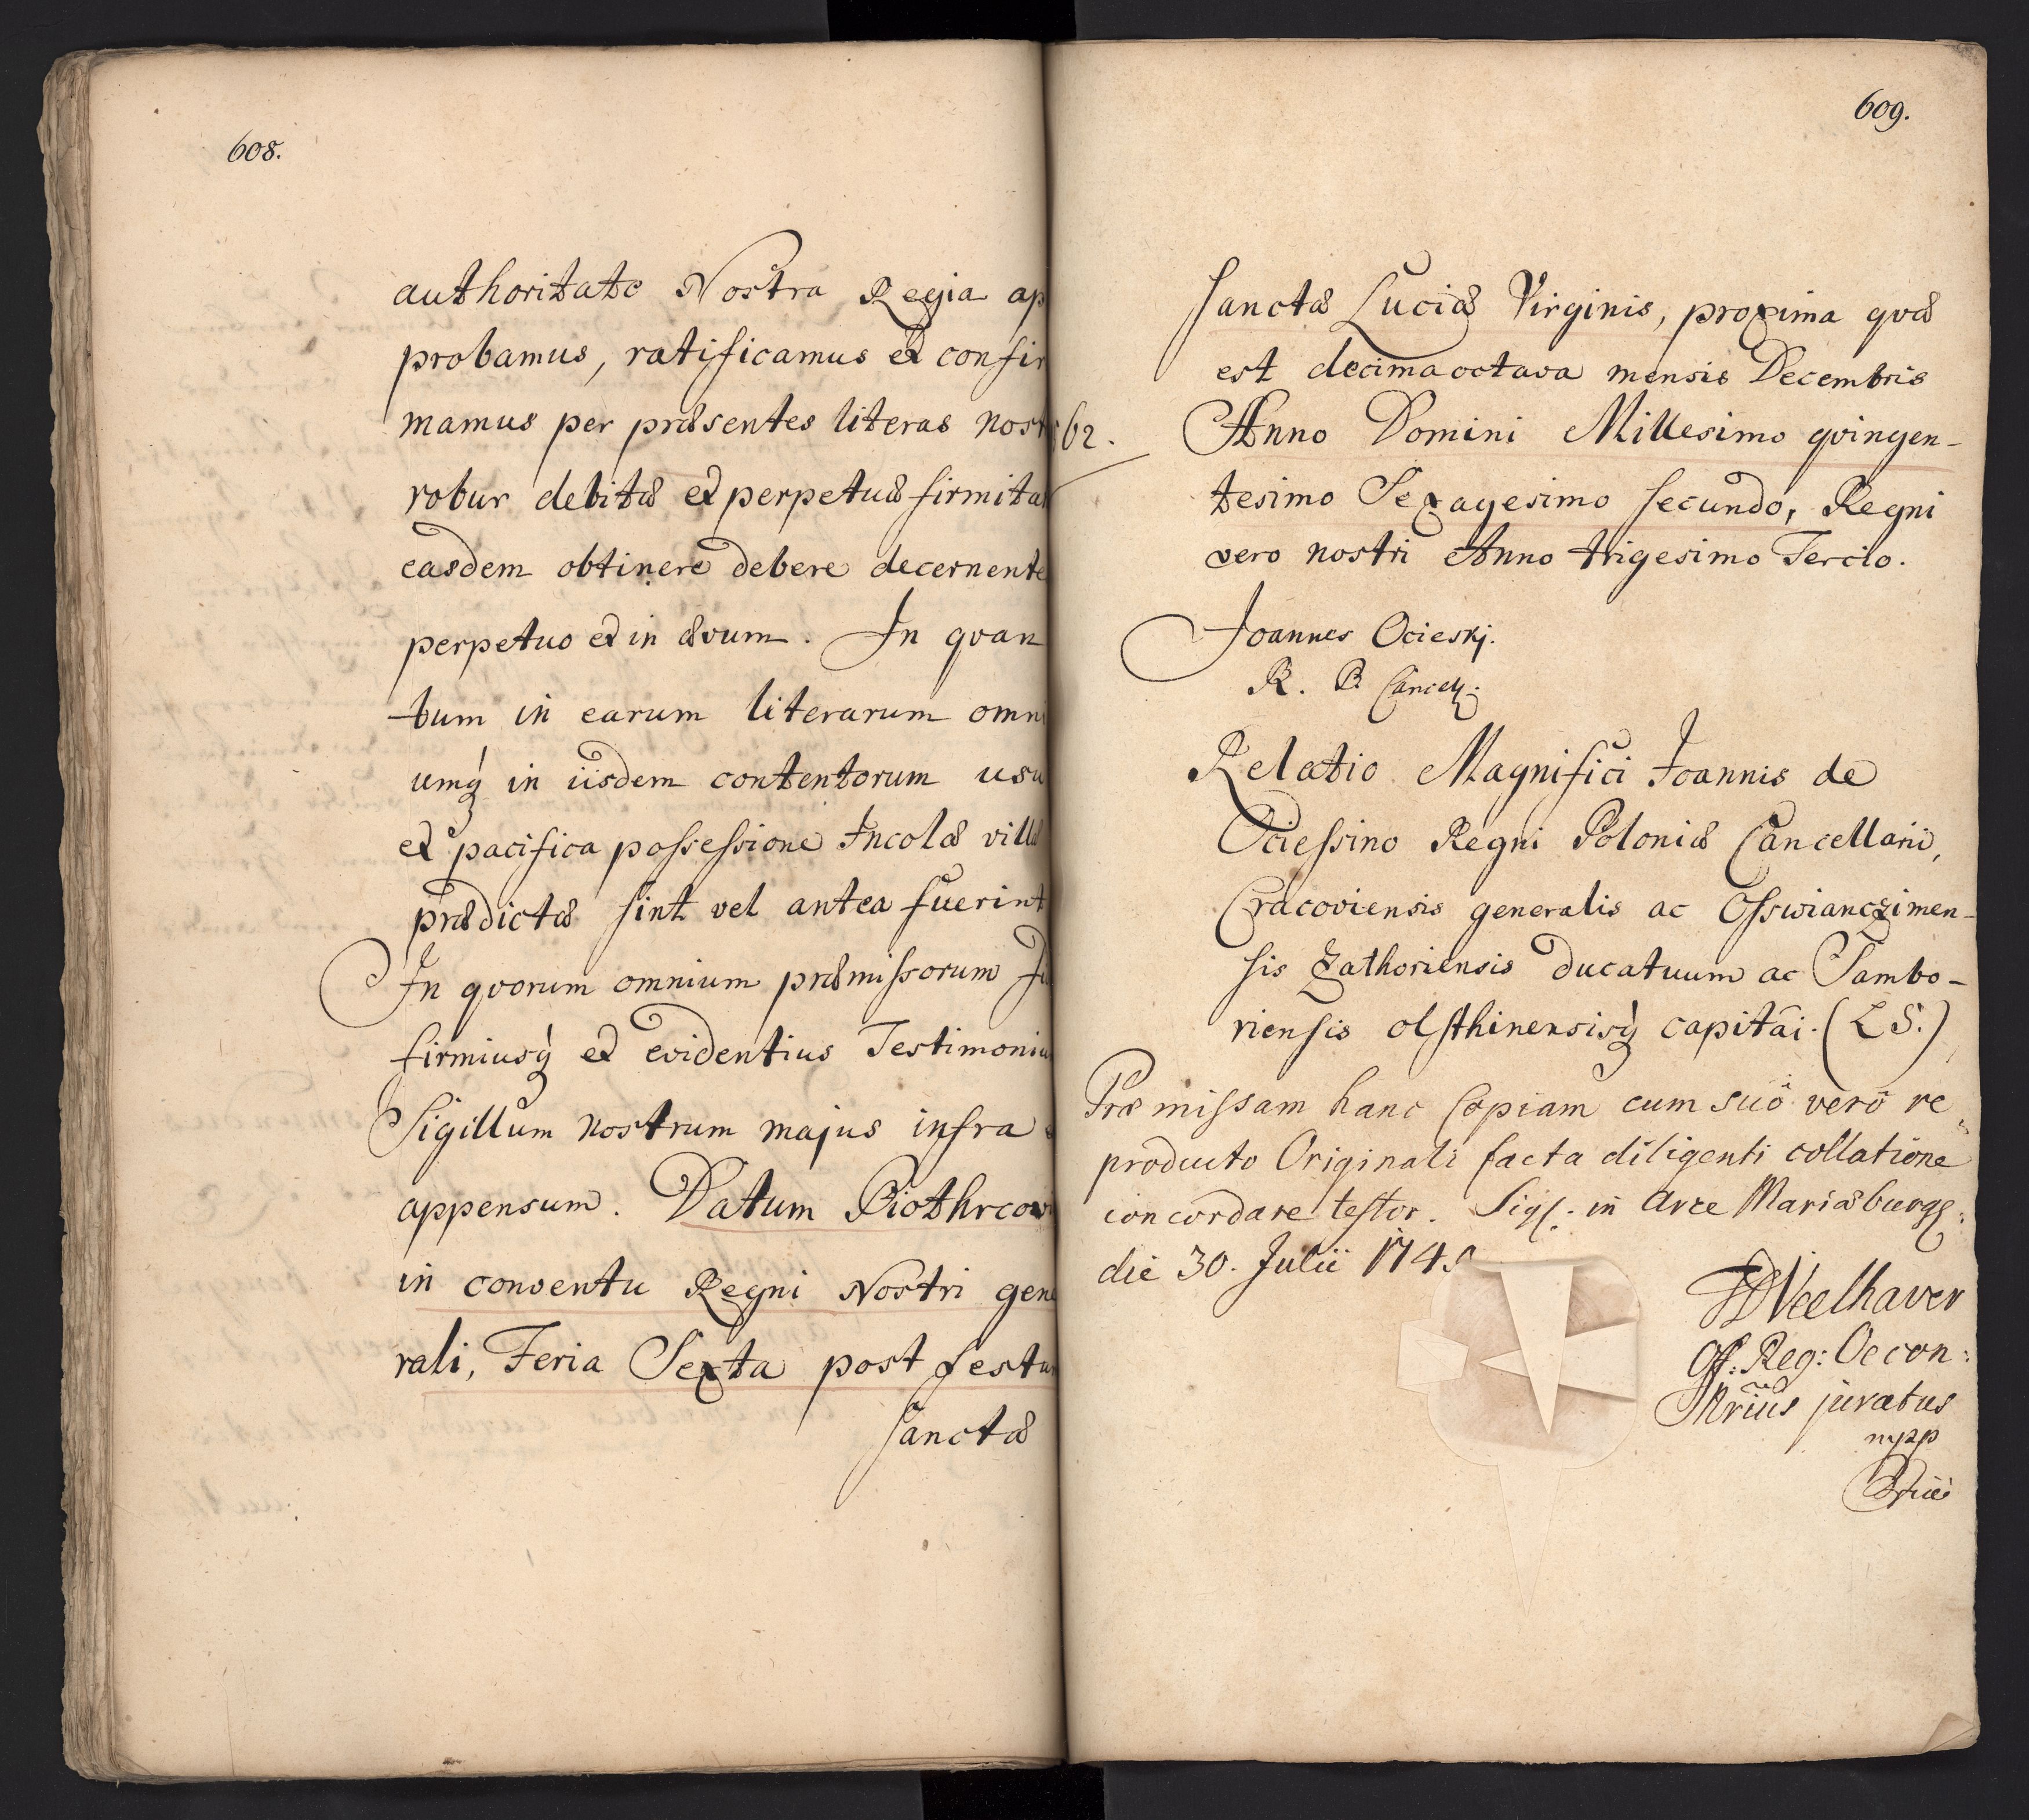 608.
authoritate Nostra Regia ap
probamus, ratificamus et confir
mamus per præsentes literas nost
robur debitæ et perpetuæ firmita
easdem obtinere debere decernente
perpetuo et in ævum. In qvan
tum in earum literarum omn
umq́ in iisdem contentorum usu
et pacifica possessione Incolæ villæ
prædictæ sint vel antea fuerint
In qvorum omnium præmissorum
firmiusq́ et evidentius Testimoniu
Sigillum nostrum majus infra
appensum. Datum Piothrcov
in conventu Regni Nostri gene
rali, Feria Sexta post festu
sanctæ
609.
Sanctæ Luciæ Virginis, proxima qvæ
est decima octava mensis Decembris
562. Anno Domini Millesimo qvingen-
tesimo Sexagesimo secundo, Regni
vero nostri Anno trigesimo Tercio.
Joannes Ocieskj.
R. P. Cancell:
Relatio Magnifici Joannis de
Ociessino Regni Poloniæ Cancellarii,
Cracoviensis generalis ac Osswianczimen-
sis Zathoriensis Ducatuum ac Sambo-
riensis olsthinensisq́ capitāi. (L S.)
Præmissam hanc Copiam cum suo vero re
producto Originali facta diligenti collatione
concordare testor. Sig: in Arce Mariæburg:
die 30. Julii 174
Off: Reg: Oecon:
juratus
mpp